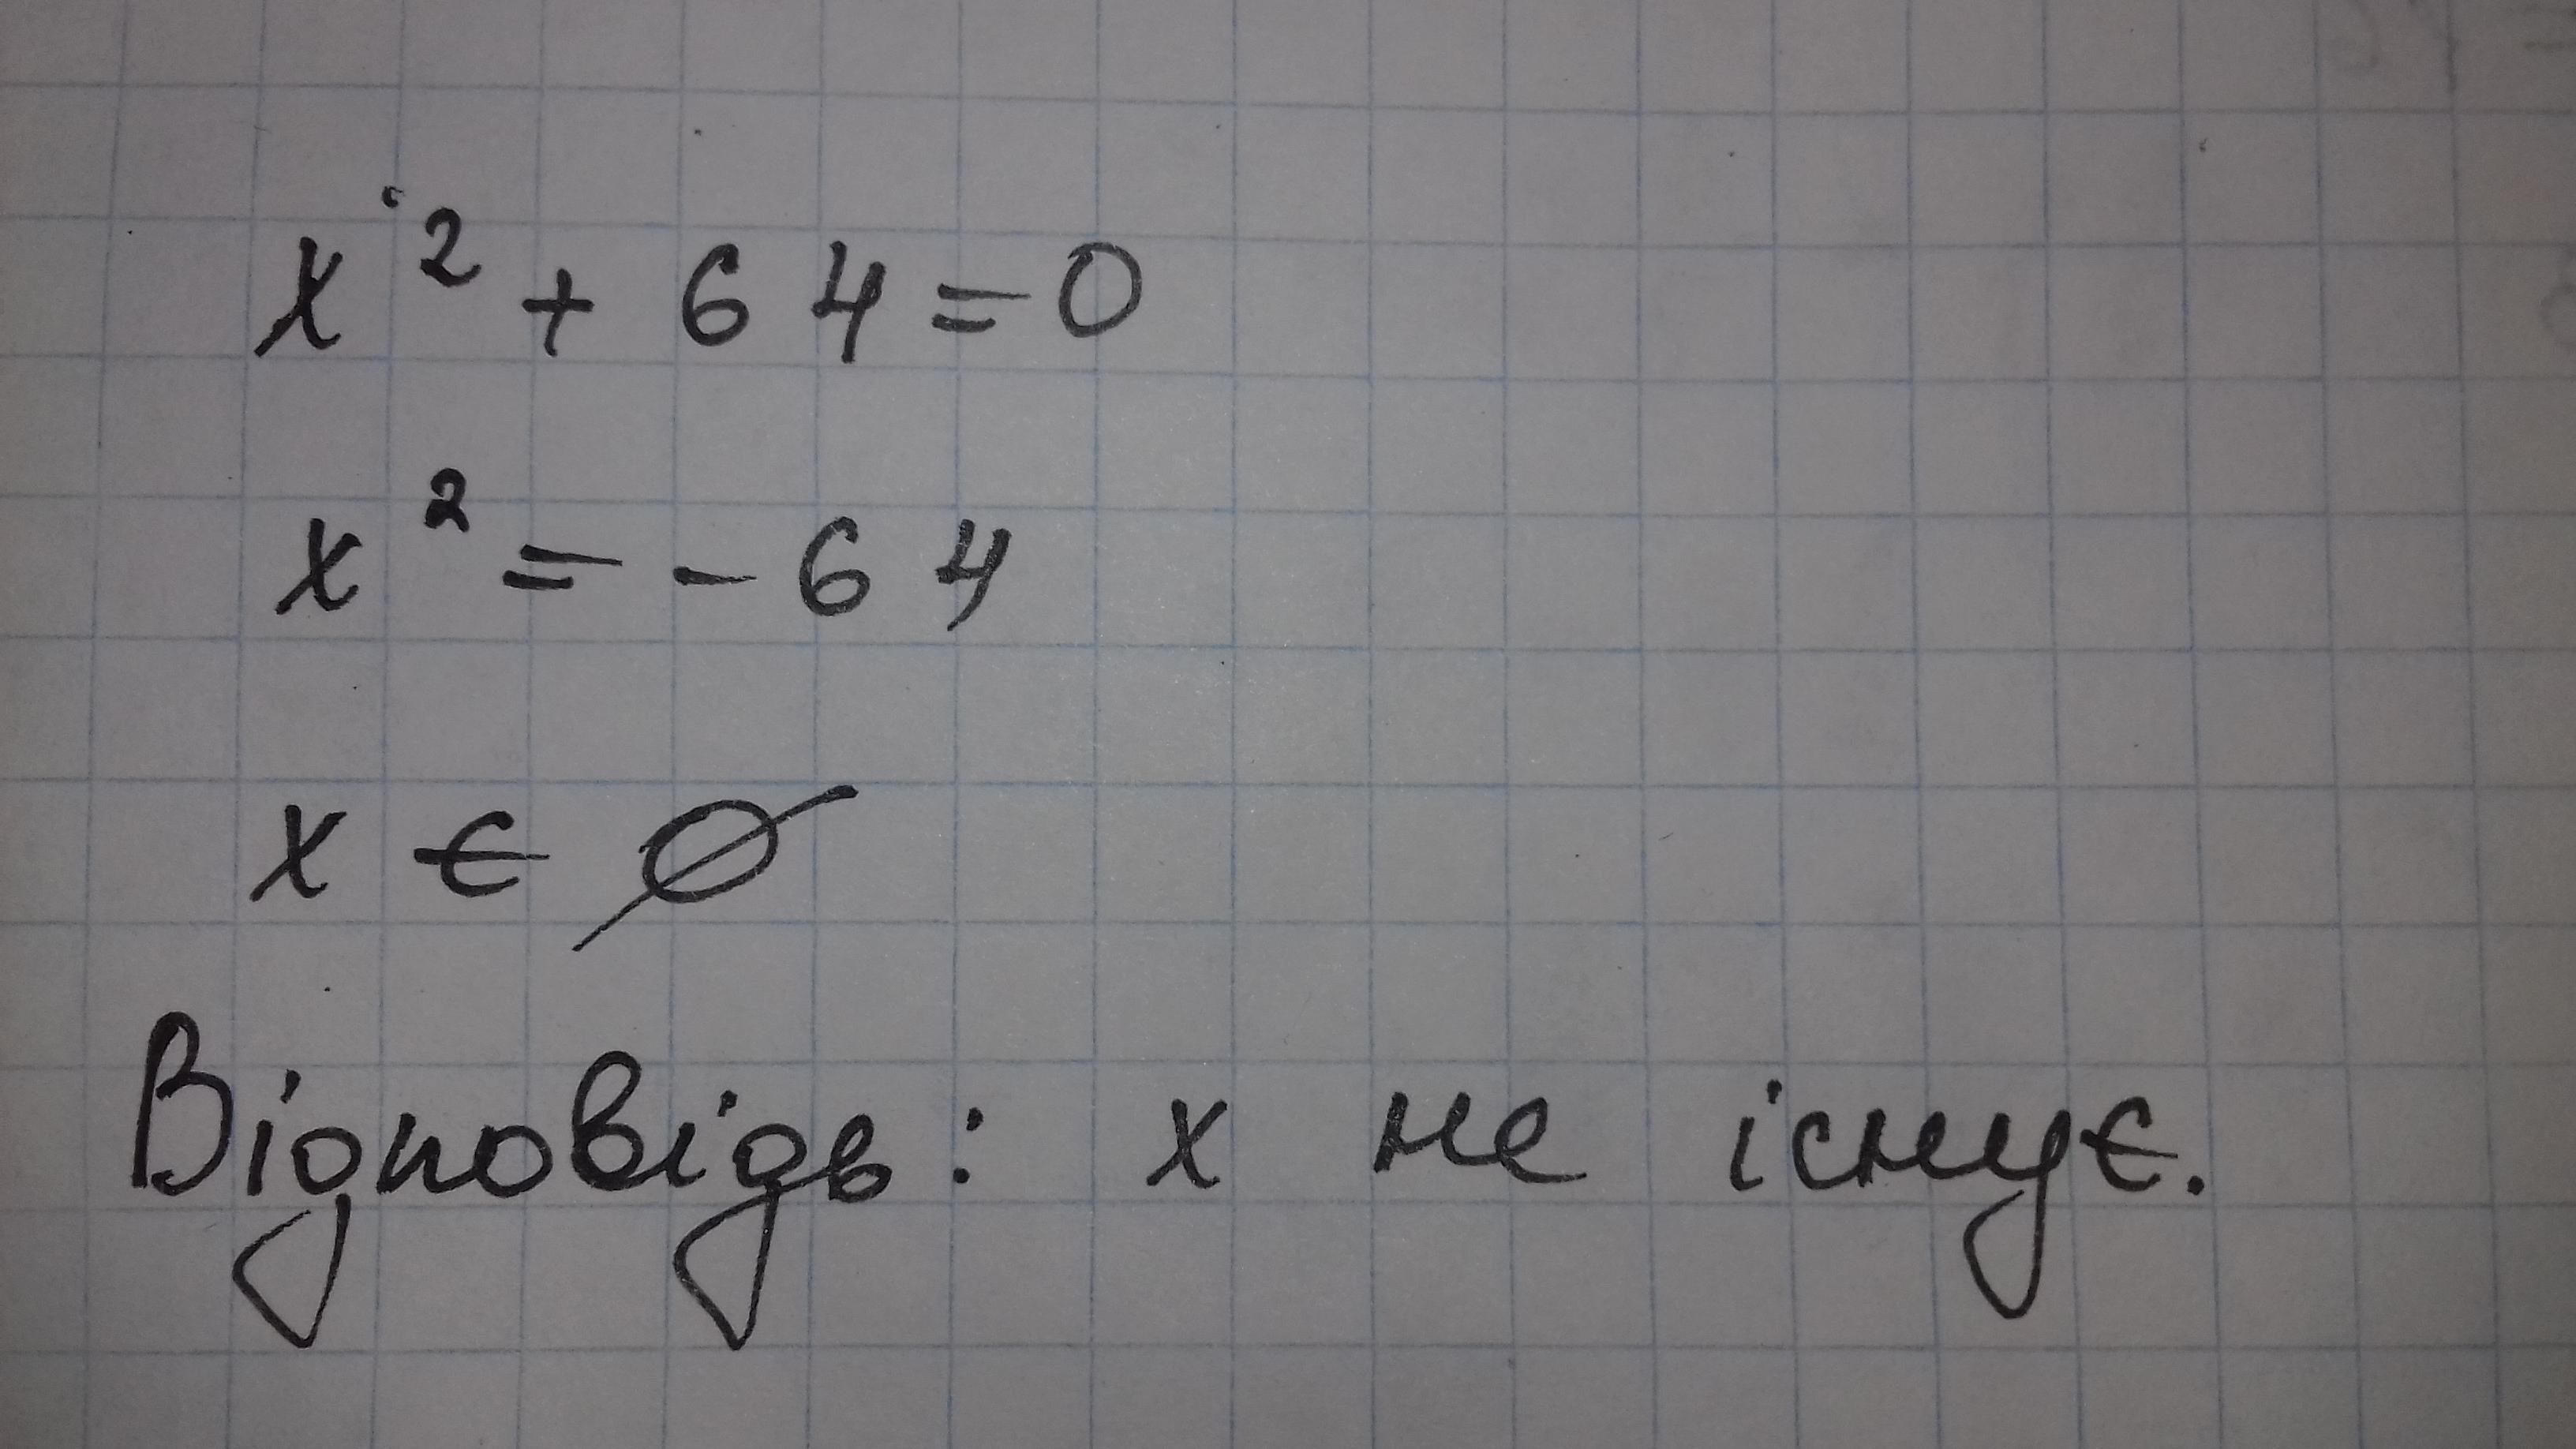 x² + 64 = 0
x² = - 64
x є ∅
Відповідь: x не існує.